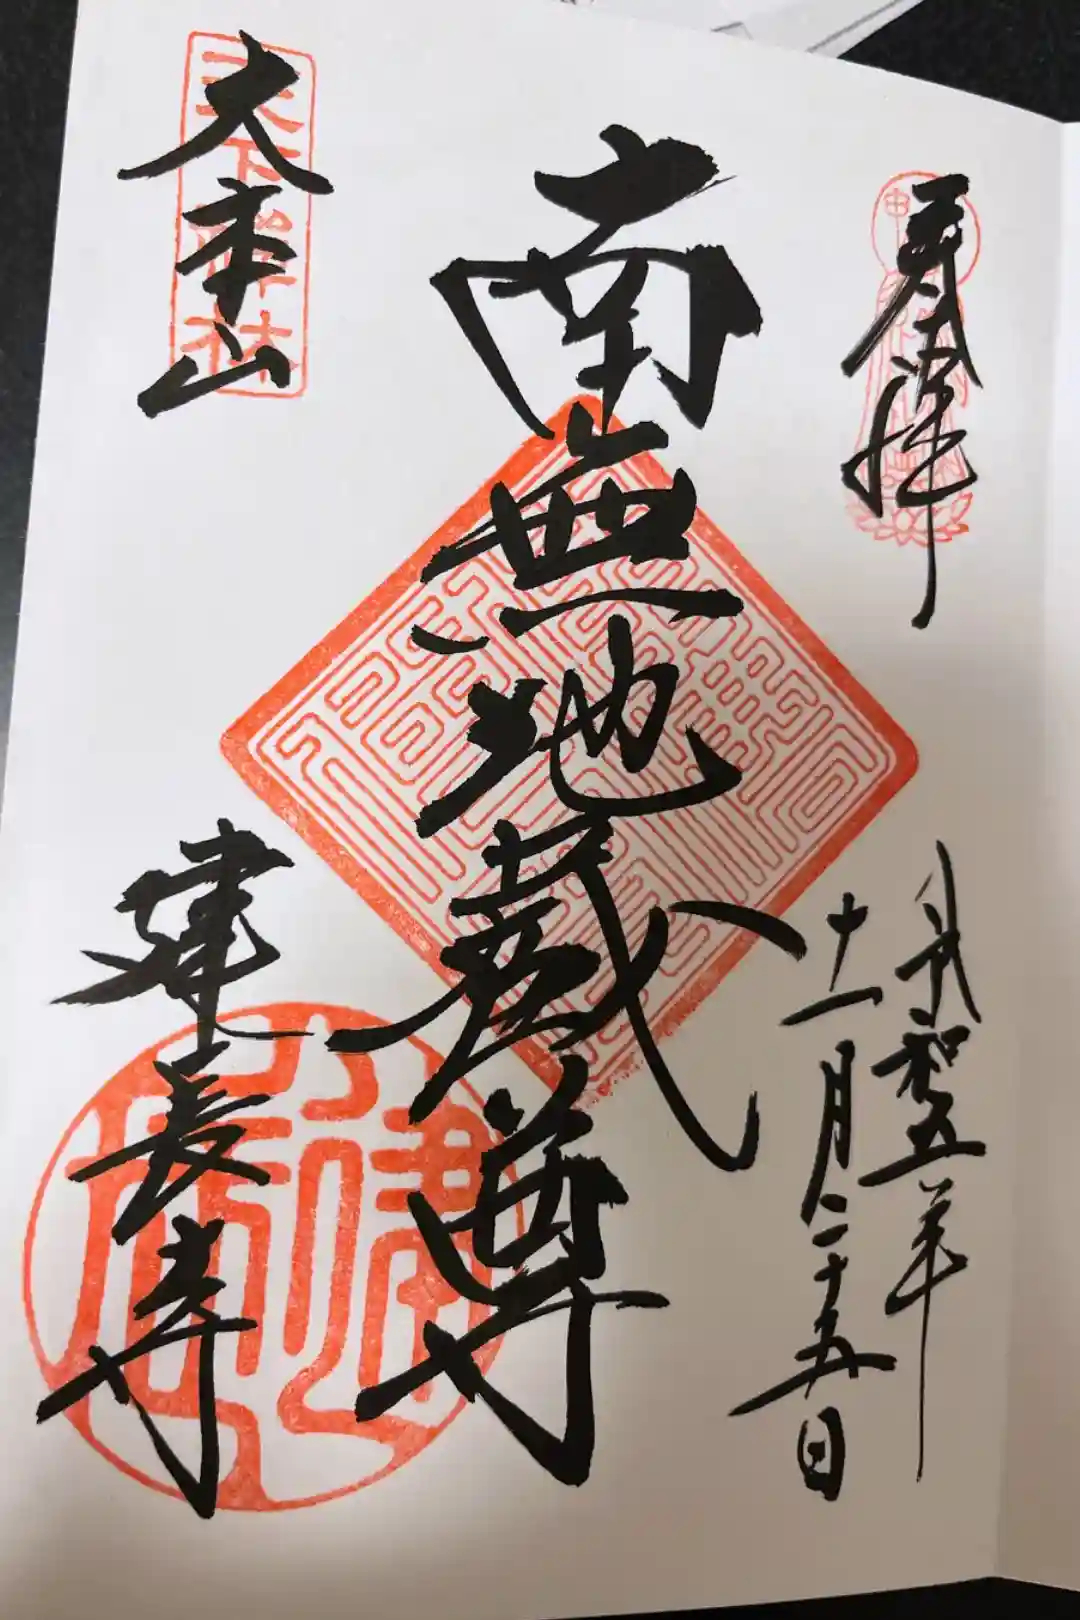 奉拝
令和五年
十一月二十五日
南無地蔵尊
大本山
建長寺
天下禅林